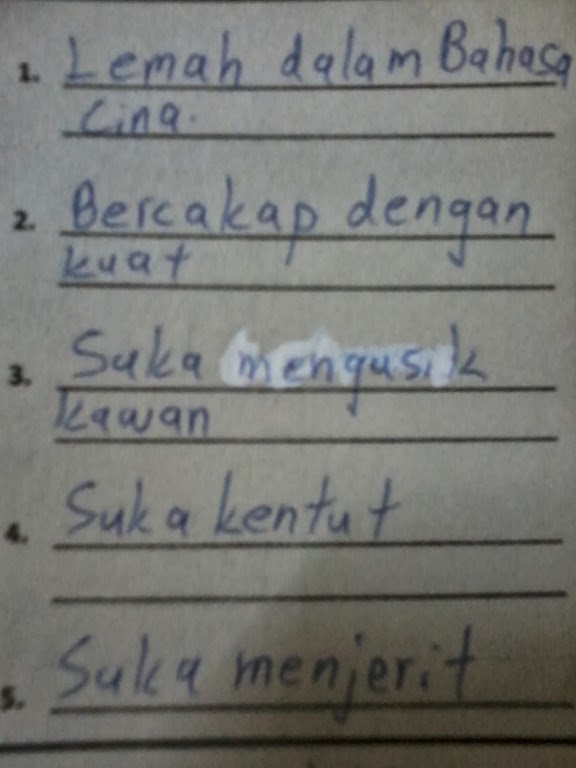 1. Lemah dalam Bahasa
Cina.
2. Bercakap dengan
kuat
3. Suka mengusik
kawan
4. Suka kentut
5. Suka menjerit